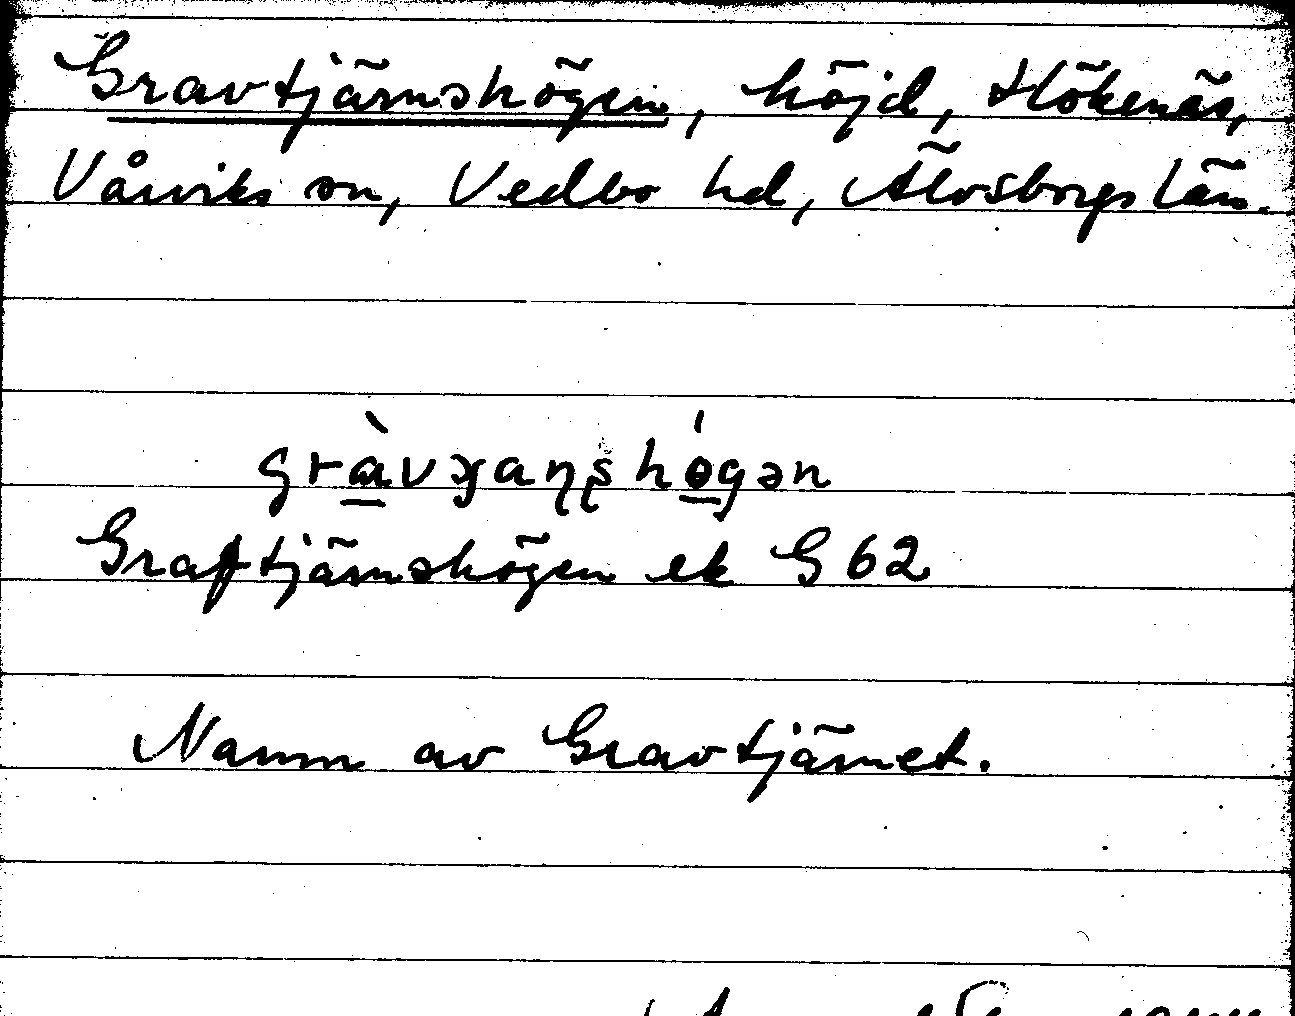 Gravtjärnshögen, höjd, Hökenäs,
Vårviks sn, Vedbo hd, Älvsborgs län.
gràvɤaɳʂhǿgən
Graftjärnshögen ek G 62
Namn av Gravtjärnet.